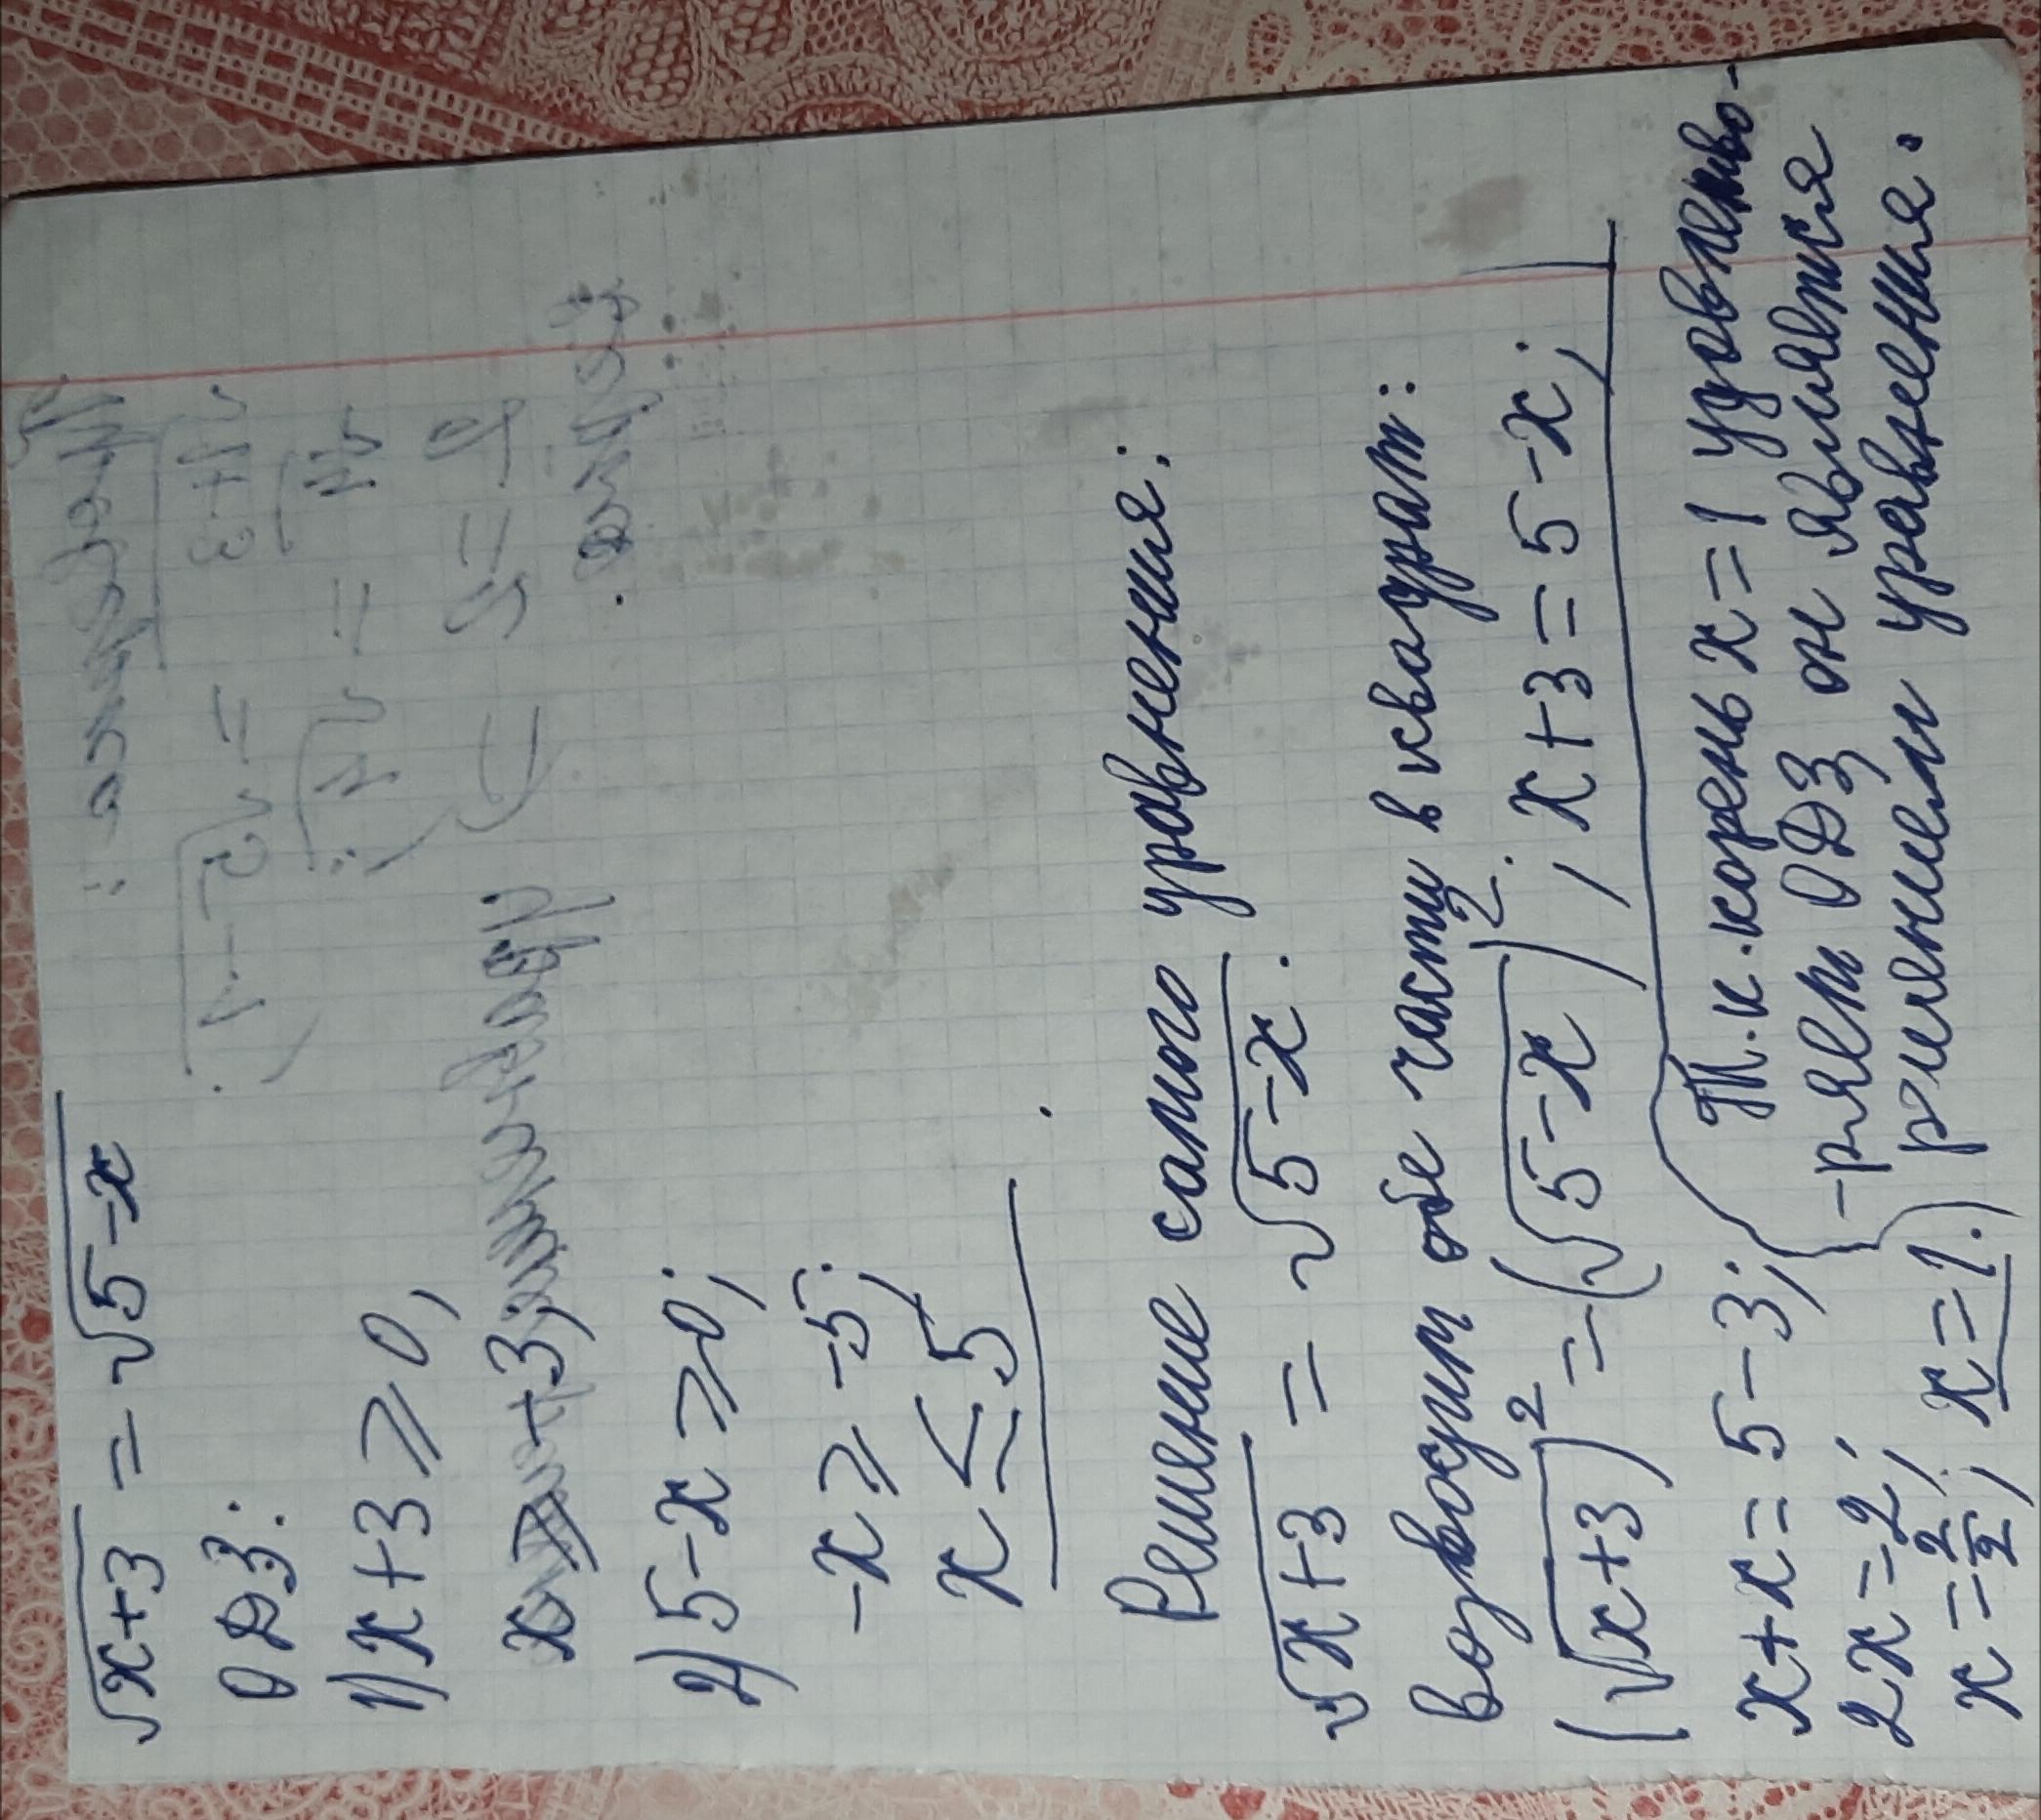 √x+3 = √5-x
ОДЗ:
1) x+3 ⩾ 0,
x ⩾ +3;
2) 5-x ⩾ 0;
-x ⩾ -5;
x ≤ 5
Решение самого уравнения:
√x+3 = √5-x.
Возводим обе части в квадрат:
(√x+3)² = (√5-x)²; x+3 = 5-x;
x+x = 5-3;
2x = 2;
x = 2/2; x = 1.
Т.к. корень x = 1 удовлетво-
-ряет ОДЗ он является
решением уравнения.